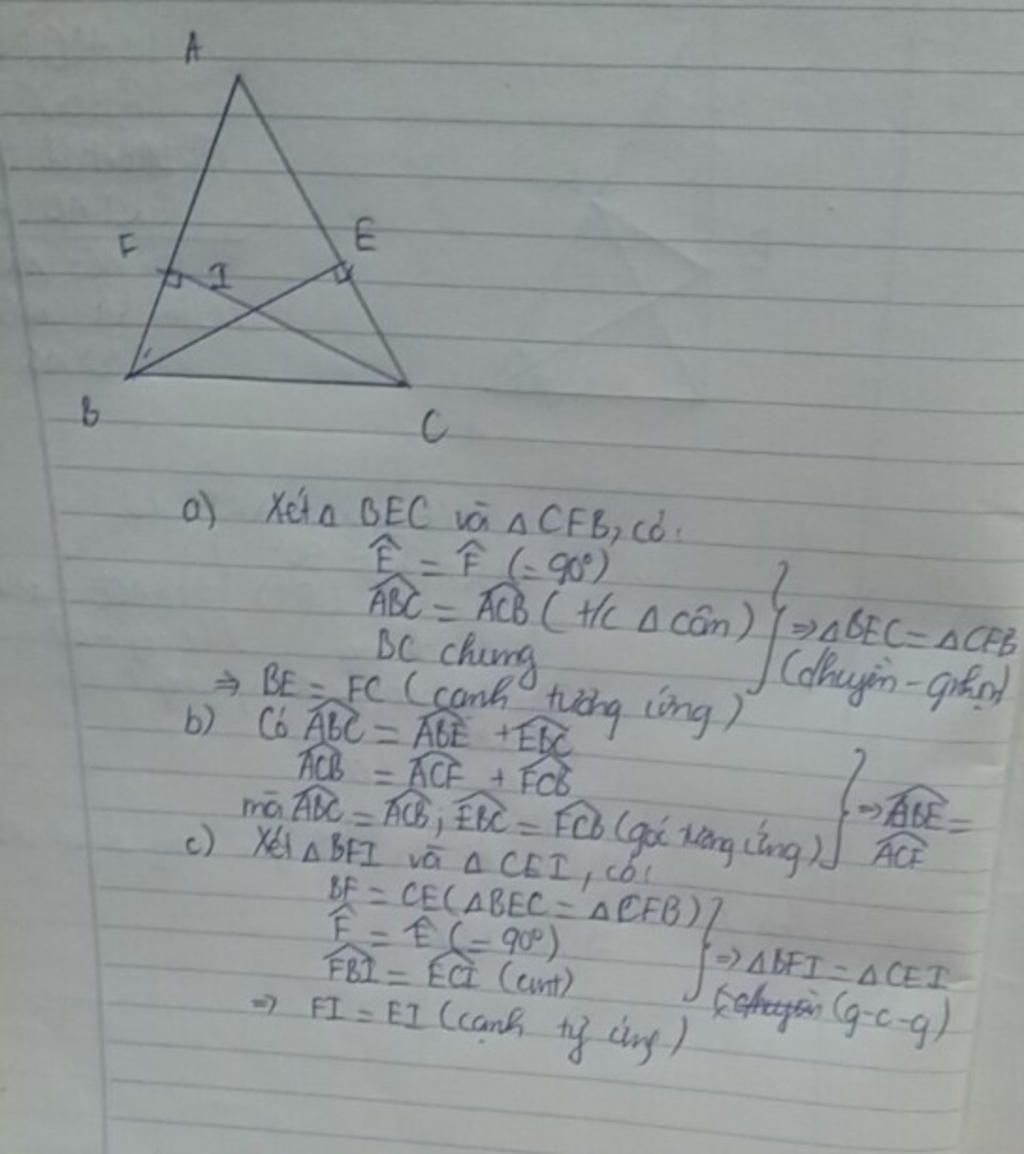 A
F
E
I
B
C
a) Xét Δ BEC và Δ CFB, có:
Ê = F̂ (= 90°)
ABĈ = ACB̂ (t/c Δ cân)
BC chung
⇒ ΔBEC = ΔCFB
(chuyền - gnhọn)
⇒ BE = FC (cạnh tương ứng)
b) Có ABC = ABE + EBC
ACB = ACF + FCB
mà ABC = ACB; EBC = FCB (góc tương ứng)
⇒ ABE =
ACF
c) Xét Δ BFI và Δ CEI, có:
BF = CE (ΔBEC = ΔCFB)
F̂ = Ê (= 90°)
FBI = ECI (cmt)
⇒ ΔBFI = ΔCEI
(g-c-g)
⇒ FI = EI (cạnh tg ứng)